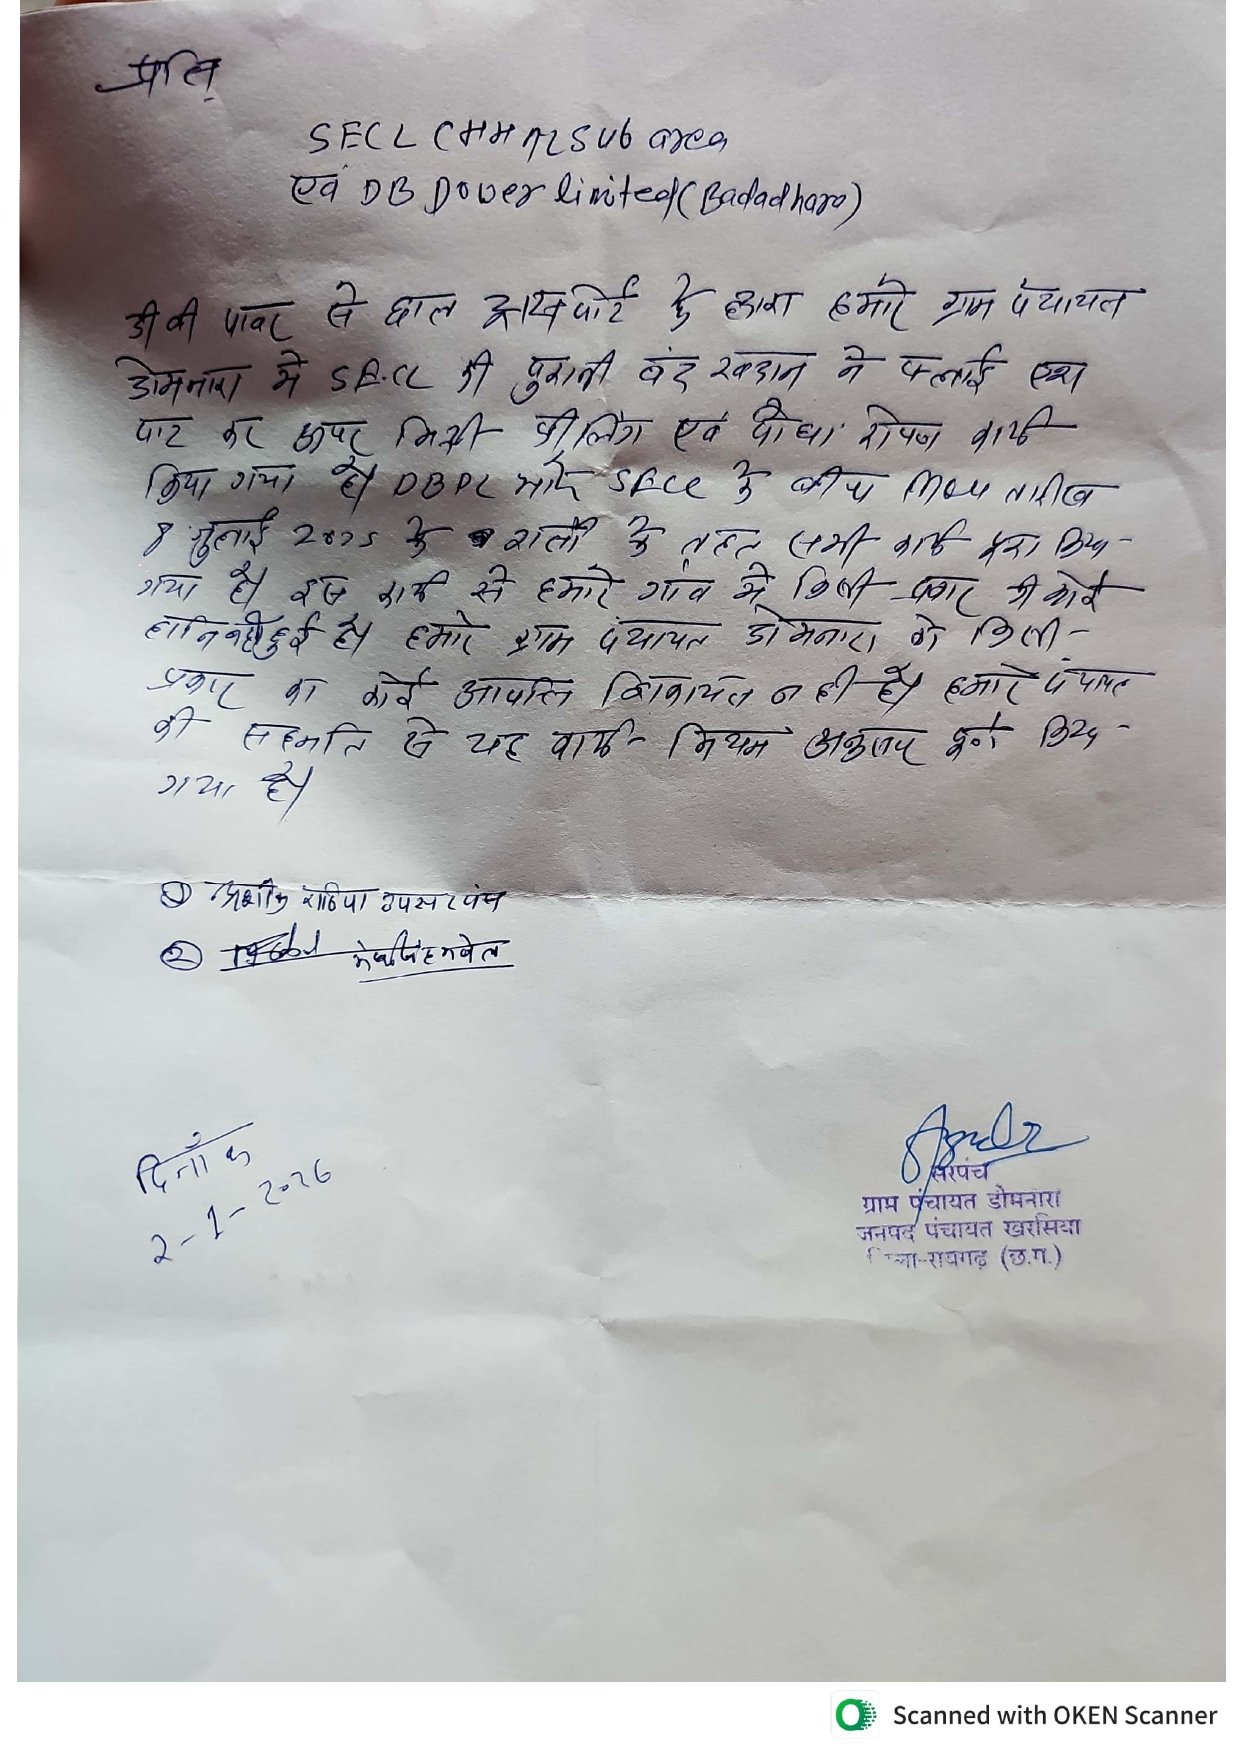 प्रति,
SECL CHHAL Sub area
एवं DB Power limited (Badadhara)
डी बी पावर से छाल ट्रांसपोर्ट के द्वारा हमारे ग्राम पंचायत
डोमनारा मे SECL की पुरानी बंद खदान मे फ्लाई एश
पाट कर ऊपर मिट्टी फीलिंग एवं पौधा रोपण कार्य
किया गया है। DBPL और SECL के बीच MOU तारीख
8 जुलाई 2025 के शर्तो के तहत सभी कार्य पुरा किया
गया है। इस कार्य से हमारे गांव मे किसी प्रकार की कोई
हानि नही हुई है। हमारे ग्राम पंचायत डोमनारा को किसी
प्रकार का कोई आपत्ति शिकायत नही है। हमारे पंचायत
की सहमति से यह कार्य नियम अनुसार पूर्ण किया
गया है।
① राठिया उपसरपंच
②
दिनाँक
2-1-2026
सरपंच
ग्राम पंचायत डोमनारा
जनपद पंचायत खरसिया
जिला-रायगढ़ (छ.ग.)
Scanned with OKEN Scanner